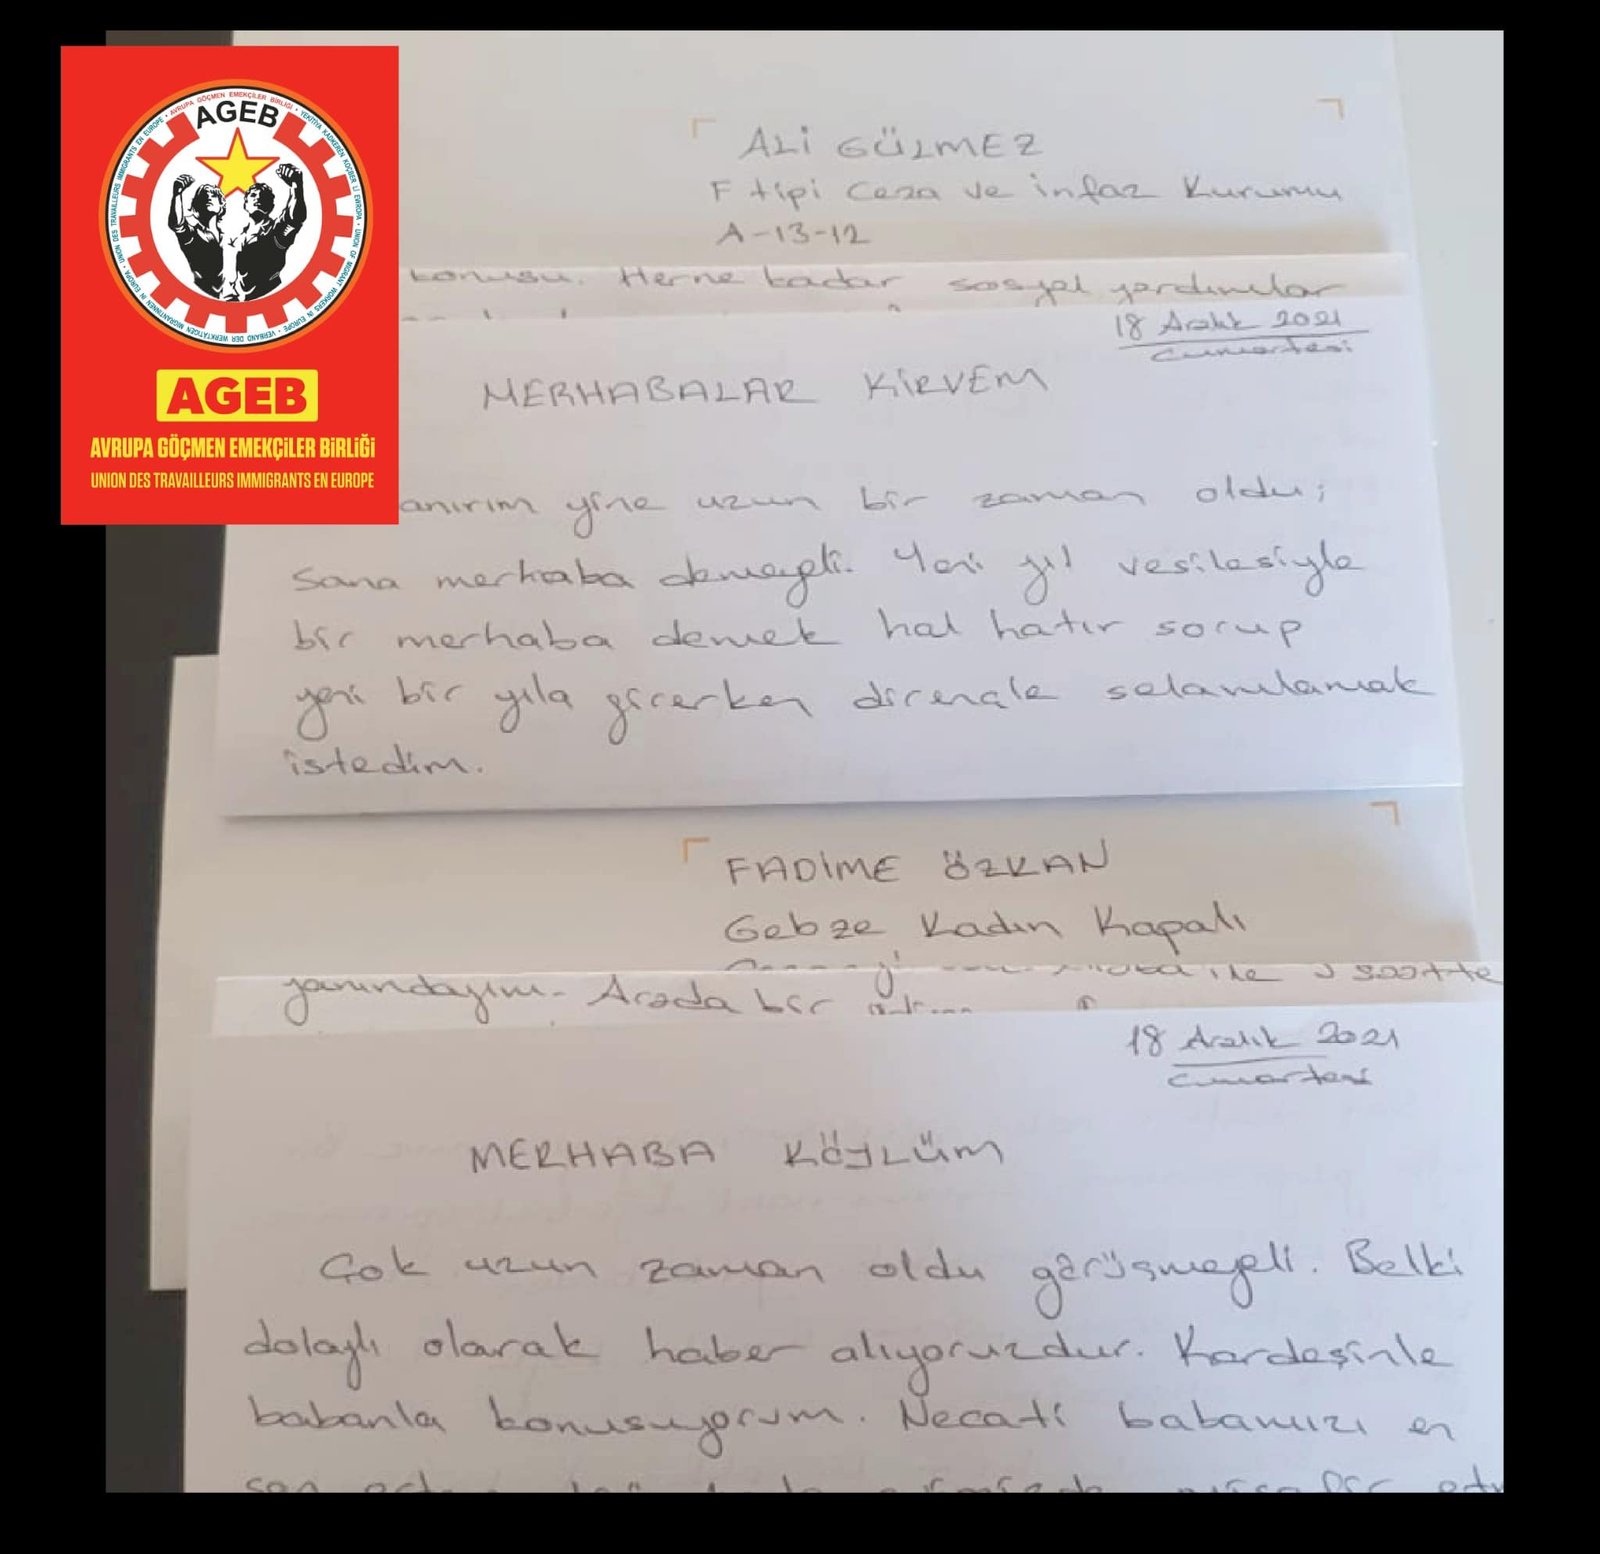 AGEB
AVRUPA GÖÇMEN EMEKÇİLER BİRLİĞİ
UNION OF MIGRANT WORKERS IN EUROPE
VERBAND DER WERKTÄTIGEN MIGRANTINNEN IN EUROPA
UNION DES TRAVAILLEURS IMMIGRANTS EN EUROPE
AGEB
AVRUPA GÖÇMEN EMEKÇİLER BİRLİĞİ
UNION DES TRAVAILLEURS IMMIGRANTS EN EUROPE
ALİ GÜLMEZ
F tipi Ceza ve infaz Kurumu
A-13-12
konusu. Herne kadar sosyal yardımlar
18 Aralık 2021
Cumartesi
MERHABALAR KİRVEM
anırım yine uzun bir zaman oldu;
Sana merhaba demeyeli. Yeni yıl vesilesiyle
bir merhaba demek hal hatır sorup
yeni bir yıla girerken dirençle selamlamak
istedim.
FADİME ÖZKAN
Gebze Kadın Kapalı
yanındayım. Arada bir
18 Aralık 2021
Cumartesi
MERHABA KÖYLÜM
Çok uzun zaman oldu görüşmeyeli. Belki
dolaylı olarak haber alıyoruzdur. Kardeşinle
babanla konuşuyorum. Necati babamızı en